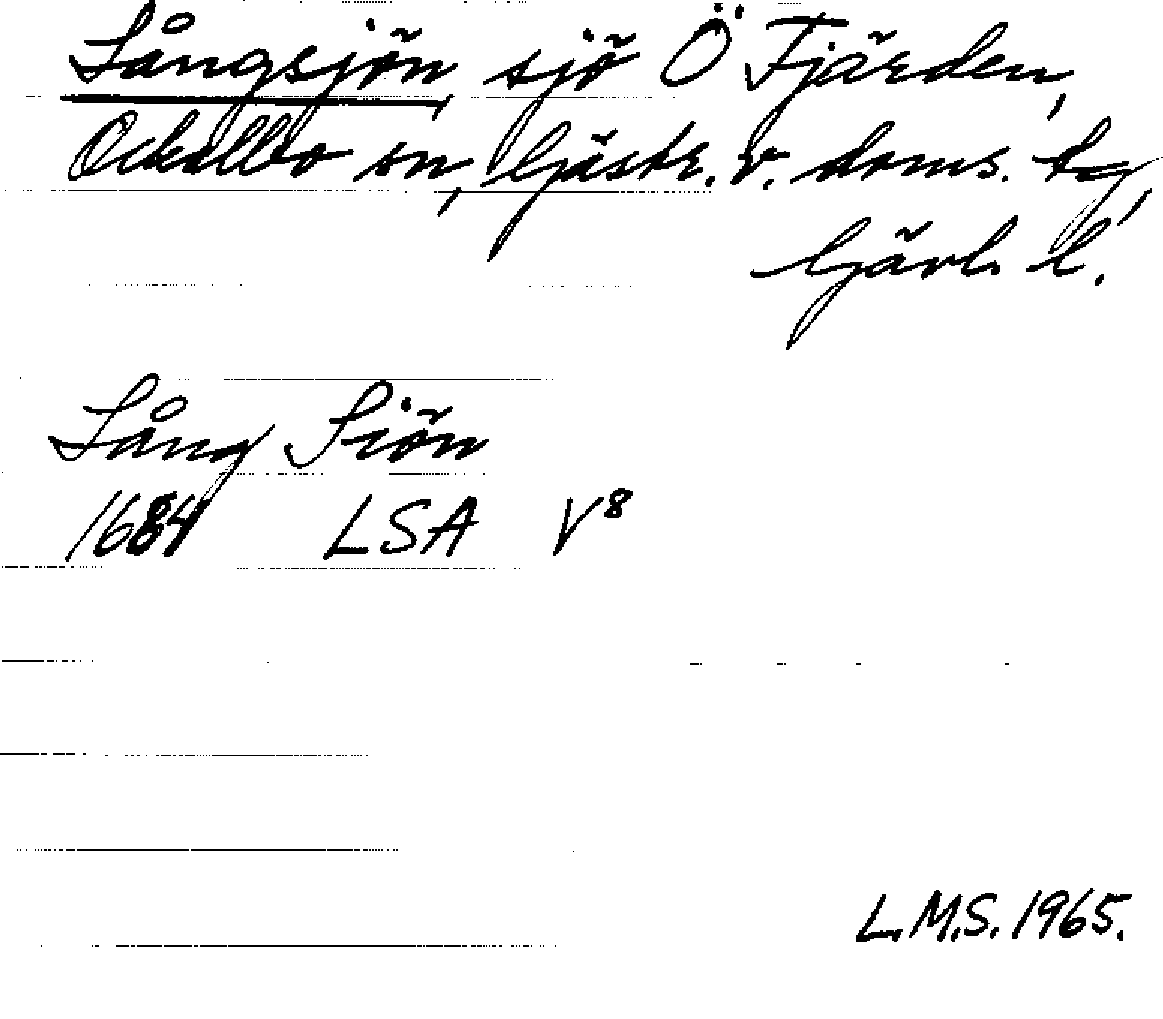 Långsjön, sjö Ö Fjärden,
Ockelbo sn, Gästr. v. doms. tg,
Gävleb. l.
Lång Siön
1684 LSA V8
L.M.S. 1965.